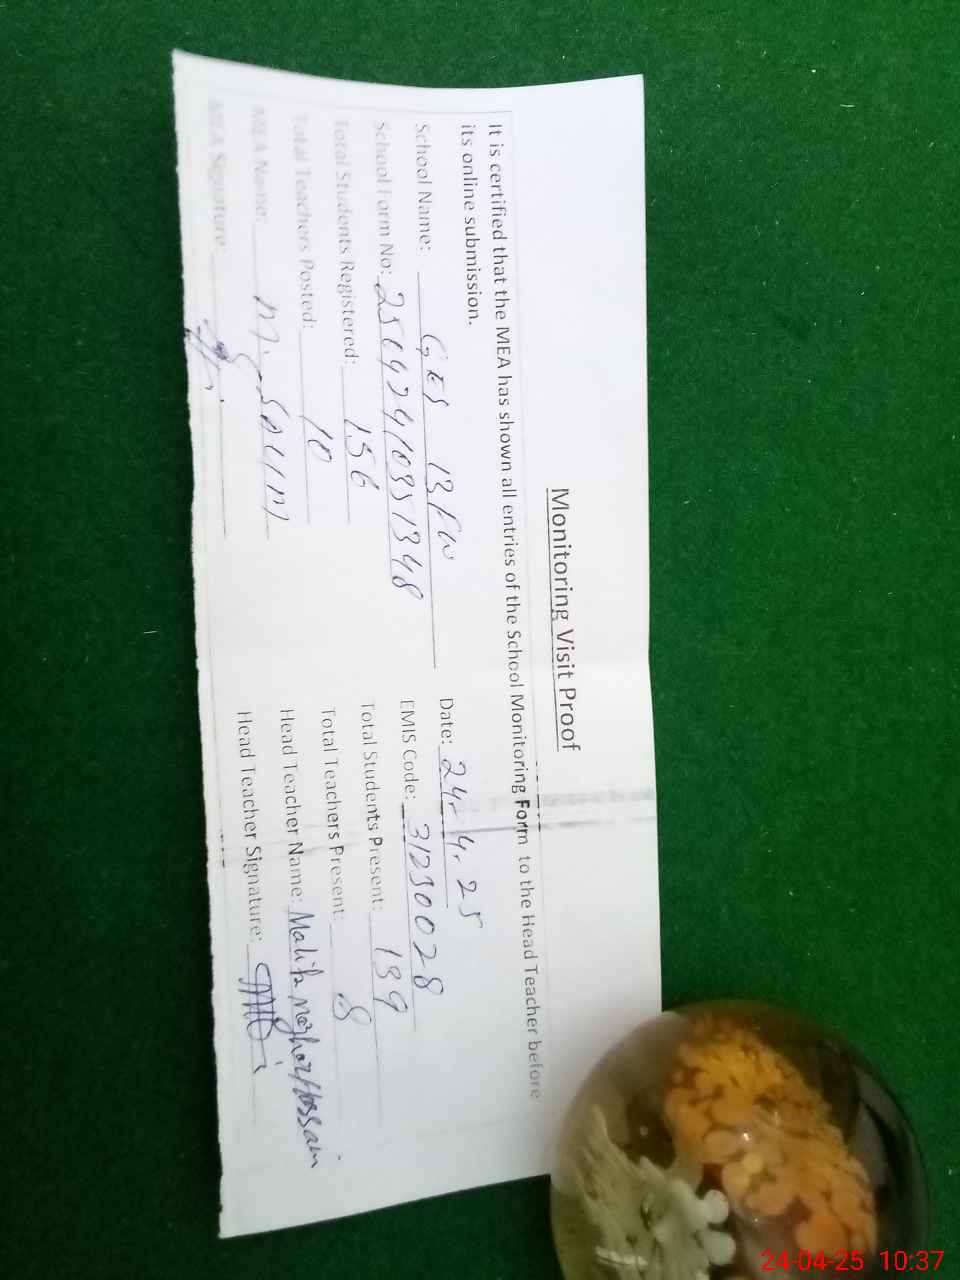 Monitoring Visit Proof
It is certified that the MEA has shown all entries of the School Monitoring Form to the Head Teacher before
its online submission.
School Name: GES 13 FW Date: 24-4-25
School Form No: EMIS Code: 31230028
Total Students Registered: 156 Total Students Present: 139
Total Teachers Posted: 10 Total Teachers Present: 8
MEA Name: M. Saum Head Teacher Name: Malik Mazhar Hossain
MEA Signature: Head Teacher Signature:
24-04-25 10:37